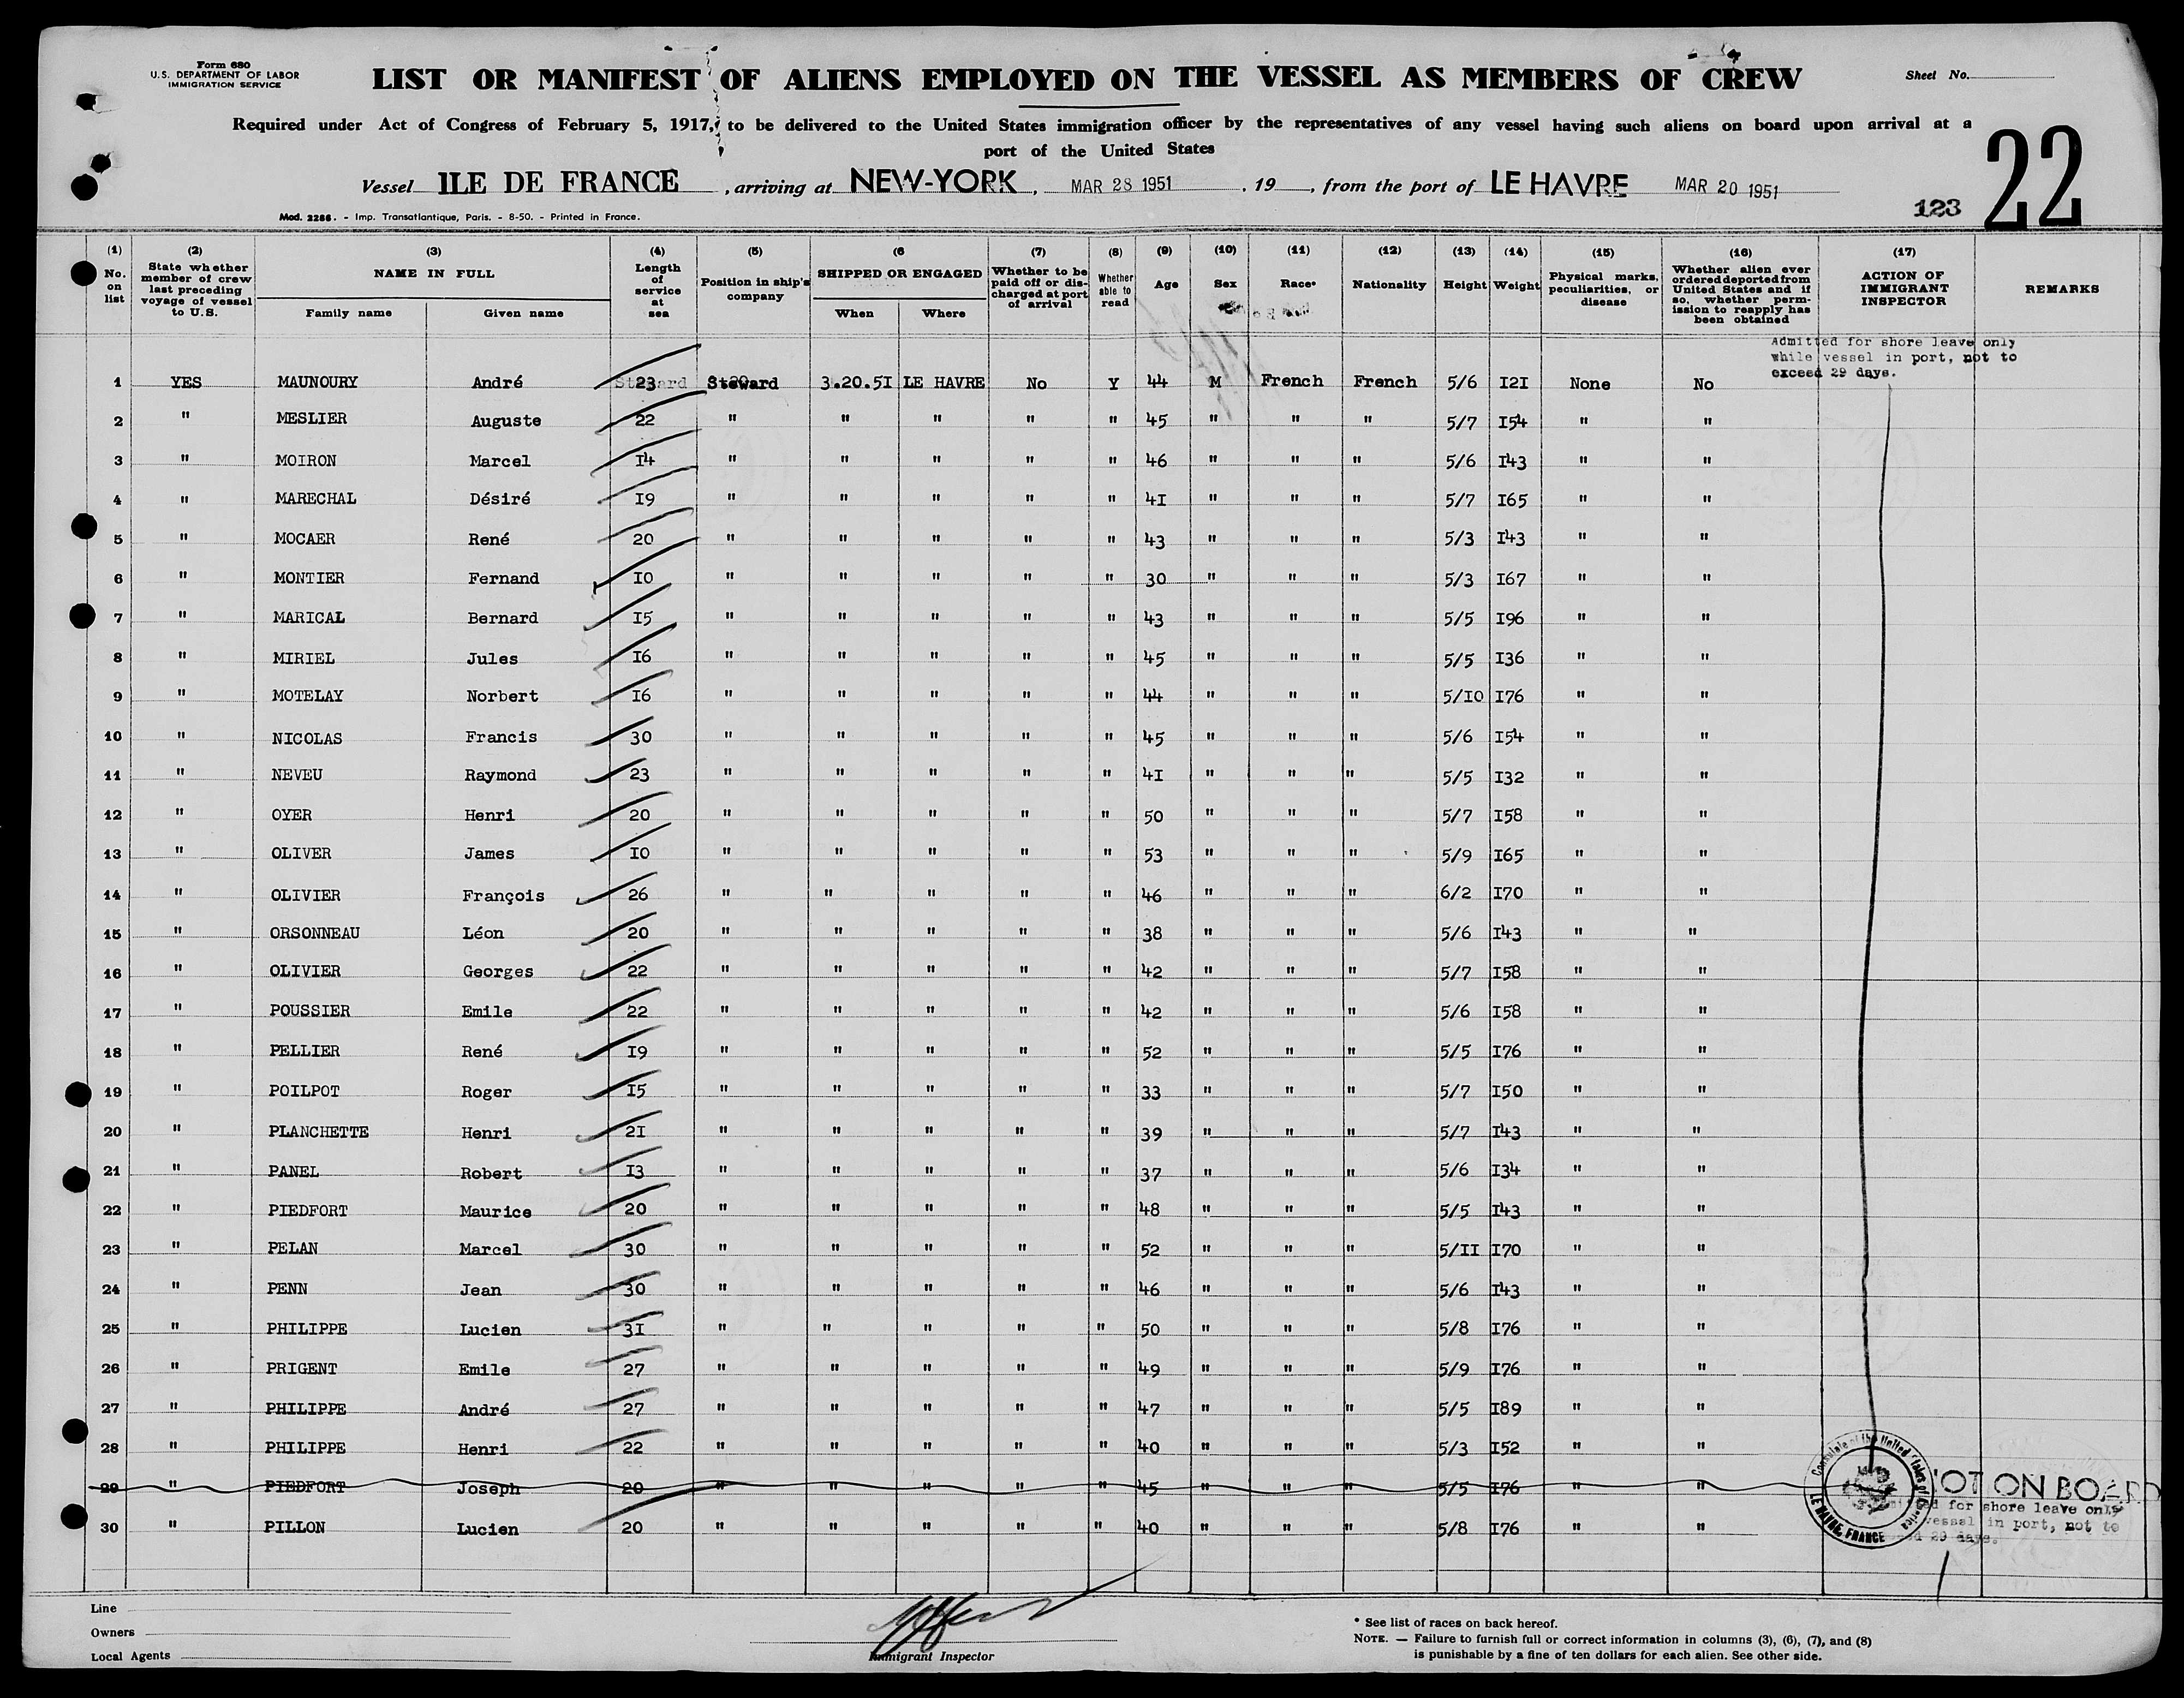 Form 680
U.S. DEPARTMENT OF LABOR
IMMIGRATION SERVICE
LIST OR MANIFEST OF ALIENS EMPLOYED ON THE VESSEL AS MEMBERS OF CREW
Sheet No.
Required under Act of Congress of February 5, 1917, to be delivered to the United States immigration officer by the representatives of any vessel having such aliens on board upon arrival at a
port of the United States
22
Vessel ILE DE FRANCE, arriving at NEW-YORK, MAR 28 1951, 19, from the port of LE HAVRE MAR 20 1951
Mod. 2286. - Imp. Transatlantique, Paris. - 8-50. - Printed in France.
123
(1) No. on list
(2) State whether member of crew last preceding voyage of vessel to U.S.
(3) NAME IN FULL Family name Given name
(4) Length of service at sea
(5) Position in ship's company
(6 SHIPPED OR ENGAGED When Where
(7) Whether to be paid off or discharged at port of arrival
(8) Whether able to read
(9) Age
(10) Sex
(11) Race*
(12) Nationality
(13) Height
(14) Weight
(15) Physical marks, peculiarities, or disease
(16) Whether alien ever ordered deported from United States and if so, whether permission to reapply has been obtained
(17) ACTION OF IMMIGRANT INSPECTOR
REMARKS
Admitted for shore leave only
while vessel in port, not to
exceed 29 days.
1 YES MAUNOURY André 23 Steward 3.20.5I LE HAVRE No Y 44 M French French 5/6 I2I None No
2 " MESLIER Auguste 22 " " " " " 45 " " " 5/7 I54 " "
3 " MOIRON Marcel I4 " " " " " 46 " " " 5/6 I43 " "
4 " MARECHAL Désiré I9 " " " " " 4I " " " 5/7 I65 " "
5 " MOCAER René 20 " " " " " 43 " " " 5/3 I43 " "
6 " MONTIER Fernand I0 " " " " " 30 " " " 5/3 I67 " "
7 " MARICAL Bernard I5 " " " " " 43 " " " 5/5 I96 " "
8 " MIRIEL Jules I6 " " " " " 45 " " " 5/5 I36 " "
9 " MOTELAY Norbert I6 " " " " " 44 " " " 5/I0 I76 " "
10 " NICOLAS Francis 30 " " " " " 45 " " " 5/6 I54 " "
11 " NEVEU Raymond 23 " " " " " 4I " " " 5/5 I32 " "
12 " OYER Henri 20 " " " " " 50 " " " 5/7 I58 " "
13 " OLIVER James I0 " " " " " 53 " " " 5/9 I65 " "
14 " OLIVIER François 26 " " " " " 46 " " " 6/2 I70 " "
15 " ORSONNEAU Léon 20 " " " " " 38 " " " 5/6 I43 " "
16 " OLIVIER Georges 22 " " " " " 42 " " " 5/7 I58 " "
17 " POUSSIER Emile 22 " " " " " 42 " " " 5/6 I58 " "
18 " PELLIER René I9 " " " " " 52 " " " 5/5 I76 " "
19 " POILPOT Roger I5 " " " " " 33 " " " 5/7 I50 " "
20 " PLANCHETTE Henri 2I " " " " " 39 " " " 5/7 I43 " "
21 " PANEL Robert I3 " " " " " 37 " " " 5/6 I34 " "
22 " PIEDFORT Maurice 20 " " " " " 48 " " " 5/5 I43 " "
23 " PELAN Marcel 30 " " " " " 52 " " " 5/II I70 " "
24 " PENN Jean 30 " " " " " 46 " " " 5/6 I43 " "
25 " PHILIPPE Lucien 3I " " " " " 50 " " " 5/8 I76 " "
26 " PRIGENT Emile 27 " " " " " 49 " " " 5/9 I76 " "
27 " PHILIPPE André 27 " " " " " 47 " " " 5/5 I89 " "
28 " PHILIPPE Henri 22 " " " " " 40 " " " 5/3 I52 " "
29 " PIEDFORT Joseph 20 " " " " " 45 " " " 5/5 I76 " " OT ON BOARD
30 " PILLON Lucien 20 " " " " " 40 " " " 5/8 I76 " "
for shore leave only
vessel in port, not to
29 days.
Consulate of the United States of America
LE HAVRE, FRANCE
Line
Owners
Local Agents
Immigrant Inspector
* See list of races on back hereof.
NOTE. — Failure to furnish full or correct information in columns (3), (6), (7), and (8)
is punishable by a fine of ten dollars for each alien. See other side.